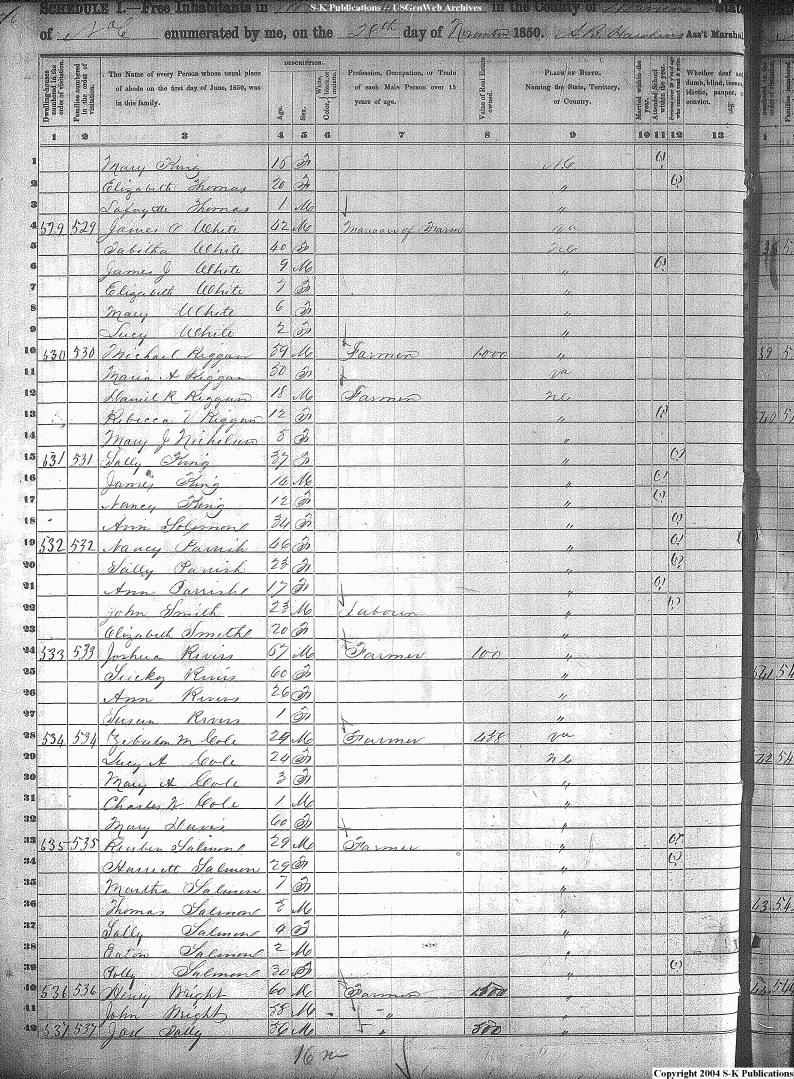 SCHEDULE I.—Free Inhabitants in in the County of State
S-K Publications USGenWeb Archives
of N. C enumerated by me, on the 28th day of November 1850. Ass't Marshal
Dwelling-houses numbered in the order of visitation.
Families numbered in the order of visitation.
The Name of every Person whose usual place of abode on the first day of June, 1850, was in this family.
DESCRIPTION.
Age.
Sex.
Color, White, black, or mulatto.
Profession, Occupation, or Trade of each Male Person over 15 years of age.
Value of Real Estate owned.
PLACE OF BIRTH.
Naming the State, Territory, or Country.
Married within the year.
Attended School within the year.
Whether deaf and dumb, blind, insane, idiotic, pauper, convict.
1 2 3 4 5 6 7 8 9 10 11 12 13
1 Mary King 15 F NC
2 Elizabeth Thomas 20 F "
3 Lafayette Thomas 1 M "
4 529 529 James White 42 M Manager of Farm Va
5 Tabitha White 40 F NC
6 James J White 9 M "
7 Elizabeth White 7 F "
8 Mary White 6 F "
9 Lucy White 2 F "
10 530 530 Michael Riggan 59 M Farmer 1000 "
11 Maria A Riggan 50 F Va
12 Daniel R Riggan 18 M Farmer NC
13 Rebecca V Riggan 12 F "
14 Mary J Nicholson F "
15 531 531 Sally King 37 F "
16 James King 14 M "
17 Nancy King 12 F "
18 Ann Solomon 34 F "
19 532 532 Nancy Parrish 46 F "
20 Sally Parrish 23 F "
21 Ann Parrish 17 F "
22 John Smith 23 M Laborer "
23 Elizabeth Smith 20 F "
24 533 533 Joshua Rivirs 57 M Farmer 100 "
25 Lucky Rivirs 60 F "
26 Ann Rivirs 26 F "
27 Susan Rivirs 1 F "
28 534 534 M Cole 29 M Farmer 458 Va
29 Lucy A Cole 24 F NC
30 Mary A Cole 3 F "
31 Charles W Cole 1 M "
32 Mary Davis 60 F "
33 535 535 Reuben Salmon 29 M Farmer "
34 Harriett Salmon 29 F "
35 Martha Salmon 7 F "
36 Thomas Salmon M "
37 Sally Salmon F "
38 Eaton Salmon 2 M "
39 Polly Salmon 30 F "
40 536 536 Henry Wright 60 M Farmer "
41 John Wright 38 M " "
42 537 537 36 M " 500 "
16 m
Copyright 2004 S-K Publications